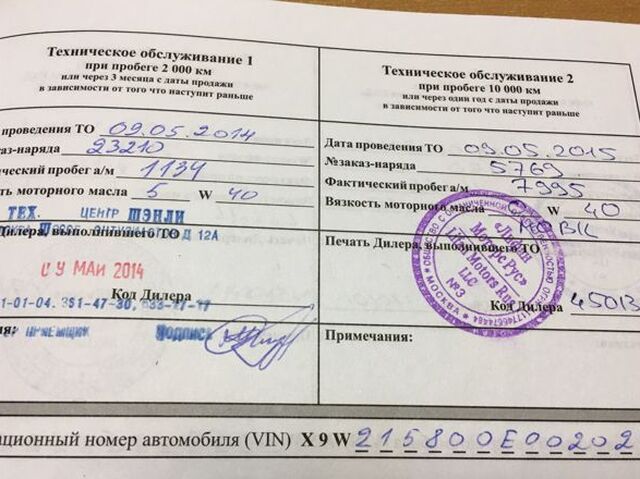 Техническое обслуживание 1
при пробеге 2 000 км
или через 3 месяца с даты продажи
в зависимости от того что наступит раньше
проведения ТО 09.05.2014
аз-наряда 23210
ический пробег а/м 1134
ть моторного масла 5 W 40
ТЕХ. ЦЕНТР ШЭНЛИ
Д 12А
Дилера, выполнившего ТО
0 9 МАЙ 2014
Код Дилера
1-01-04.
Техническое обслуживание 2
при пробеге 10 000 км
или через один год с даты продажи
в зависимости от того что наступит раньше
Дата проведения ТО 09.05.2015
№заказ-наряда 5769
Фактический пробег а/м 7995
Вязкость моторного масла W 40
Печать Дилера, выполнившего ТО
«Лифан
Моторс Рус»
Lifan Motors Rus
LLC
№3
МОСКВА
Код Дилера
Примечания:
ационный номер автомобиля (VIN) X 9 W 215800E00202